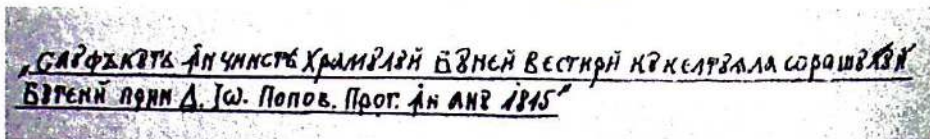 „Саȣфъкȣтъ ꙟн чинстѣ Храмȣлȣй Бȣней Вестирй кȣ келтȣала ѡрашȣлȣй
Бȣтенй прин Д. Іѡ. Попов. Прот. ꙟн анȣ 1815”